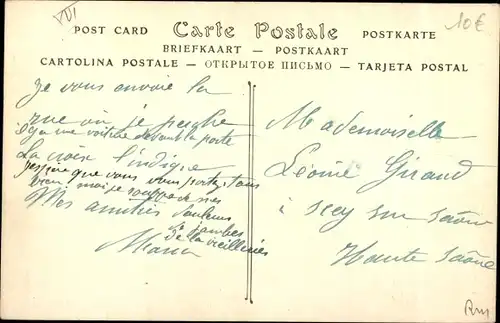 XVI
10€
POST CARD Carte Postale POSTKARTE
BRIEFKAART — POSTKAART
CARTOLINA POSTALE — ОТКРЫТОЕ ПИСЬМО — TARJETA POSTAL
Je vous envoie la
rue où je perche
il y a une voiture devant la porte
La croix l'indique
j'espère que vous vous portez tous
bien moi je souffre de mes
Mes amitiés douleurs
de jambes
de la vieillerie
Maria
Mademoiselle
Léonie Giraud
à Scey sur Saône
Haute Saône